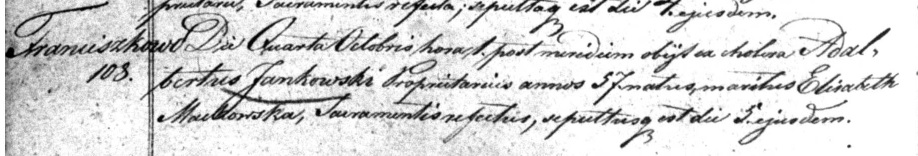 prietarii, Sacramentis refecta, sepultaq est die 7. ejusdem.
Franciszkowo Die Quarta Octobris, hora 1. post meridiem obijt ex cholera Adal-
108. bertus Jankowski Proprietarius annos 57. natus, maritus Elisabeth
Sacramentis refectus, sepultusq est die 5. ejusdem.